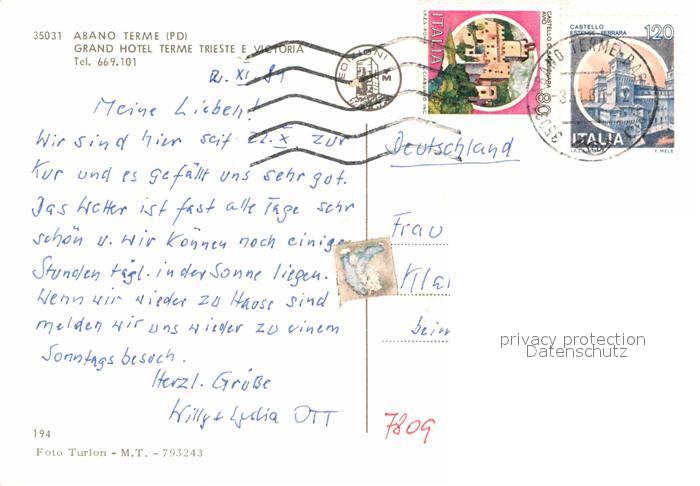 35031 ABANO TERME (PD)
GRAND HOTEL TERME TRIESTE E VICTORIA
Tel. 669.101
2. XI. 81
Meine Lieben!
Wir sind hier seit 22. X zur
Kur und es gefällt uns sehr gut.
Das Wetter ist fast alle Tage sehr
schön u. wir können noch einige
Stunden tägl. in der Sonne liegen.
Wenn wir wieder zu Hause sind
melden wir uns wieder zu einem
Sonntagsbesuch.
Herzl. Grüße
Willy + Lydia OTT
194
Foto Turlon - M.T. - 793243
EDIZIONI
M
ITALIA
80
CASTELLO
ESTENSE - FERRARA
120
ITALIA
T. MELE
ABANO TERME
Deutschland
Frau
Klar
beim
privacy protection
Datenschutz
7809